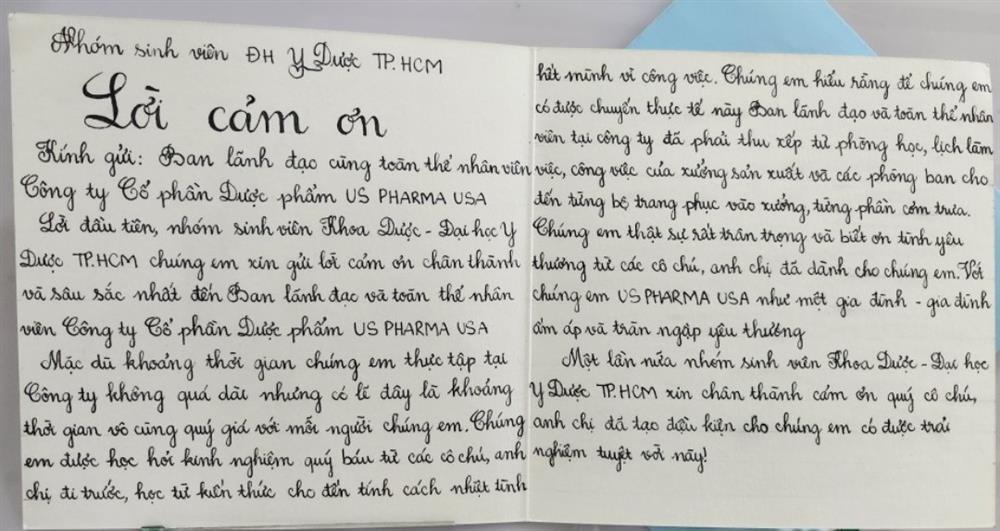 Nhóm sinh viên ĐH Y Dược TP.HCM
Lời cảm ơn
Kính gửi: Ban lãnh đạo cùng toàn thể nhân viên
Công ty Cổ phần Dược phẩm US PHARMA USA
Lời đầu tiên, nhóm sinh viên Khoa Dược - Đại học Y
Dược TP.HCM chúng em xin gửi lời cảm ơn chân thành
và sâu sắc nhất đến Ban lãnh đạo và toàn thể nhân
viên Công ty Cổ phần Dược phẩm US PHARMA USA
Mặc dù khoảng thời gian chúng em thực tập tại
Công ty không quá dài nhưng có lẽ đây là khoảng
thời gian vô cùng quý giá với mỗi người chúng em. Chúng
em được học hỏi kinh nghiệm quý báu từ các cô chú, anh
chị đi trước, học từ kiến thức cho đến tính cách nhiệt tình
hết mình vì công việc. Chúng em hiểu rằng để chúng em
có được chuyến thực tế này Ban lãnh đạo và toàn thể nhân
viên tại công ty đã phải thu xếp từ phòng học, lịch làm
việc, công việc của xưởng sản xuất và các phòng ban cho
đến từng bộ trang phục vào xưởng, từng phần cơm trưa.
Chúng em thật sự rất trân trọng và biết ơn tình yêu
thương từ các cô chú, anh chị đã dành cho chúng em. Với
chúng em US PHARMA USA như một gia đình - gia đình
ấm áp và tràn ngập yêu thương
Một lần nữa nhóm sinh viên Khoa Dược - Đại học
Y Dược TP.HCM xin chân thành cảm ơn quý cô chú,
anh chị đã tạo điều kiện cho chúng em có được trải
nghiệm tuyệt vời này!